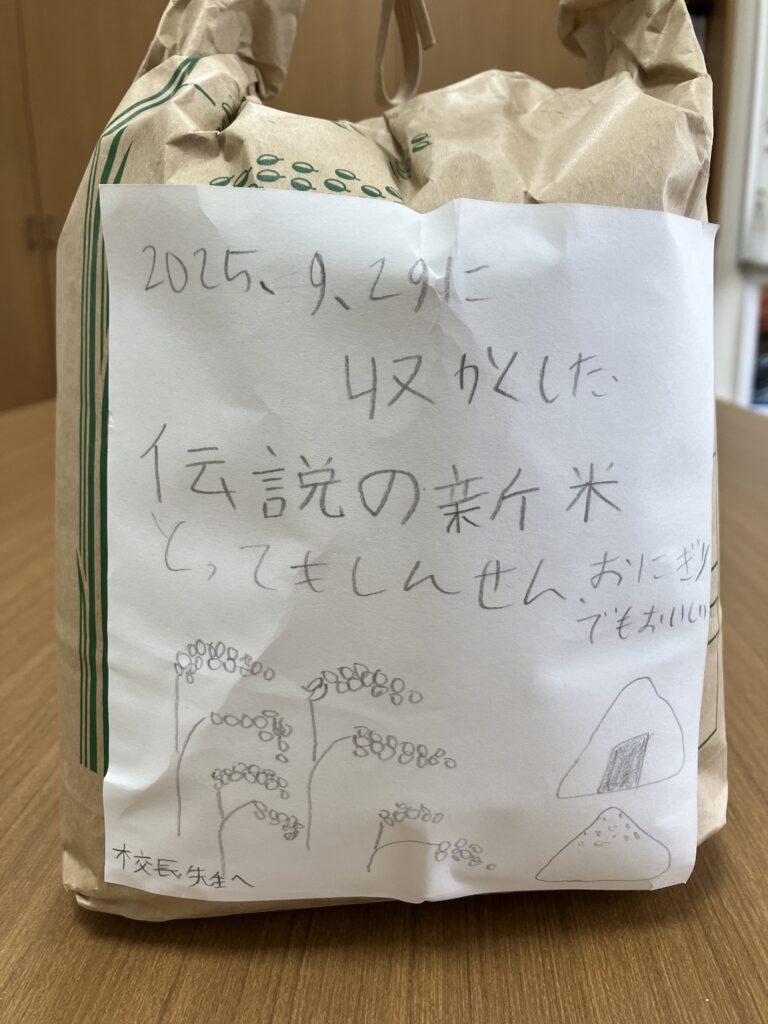 2025、9、29に
収かくした
伝説の新米
とってもしんせん、おにぎり
でもおいしい
校長先生へ